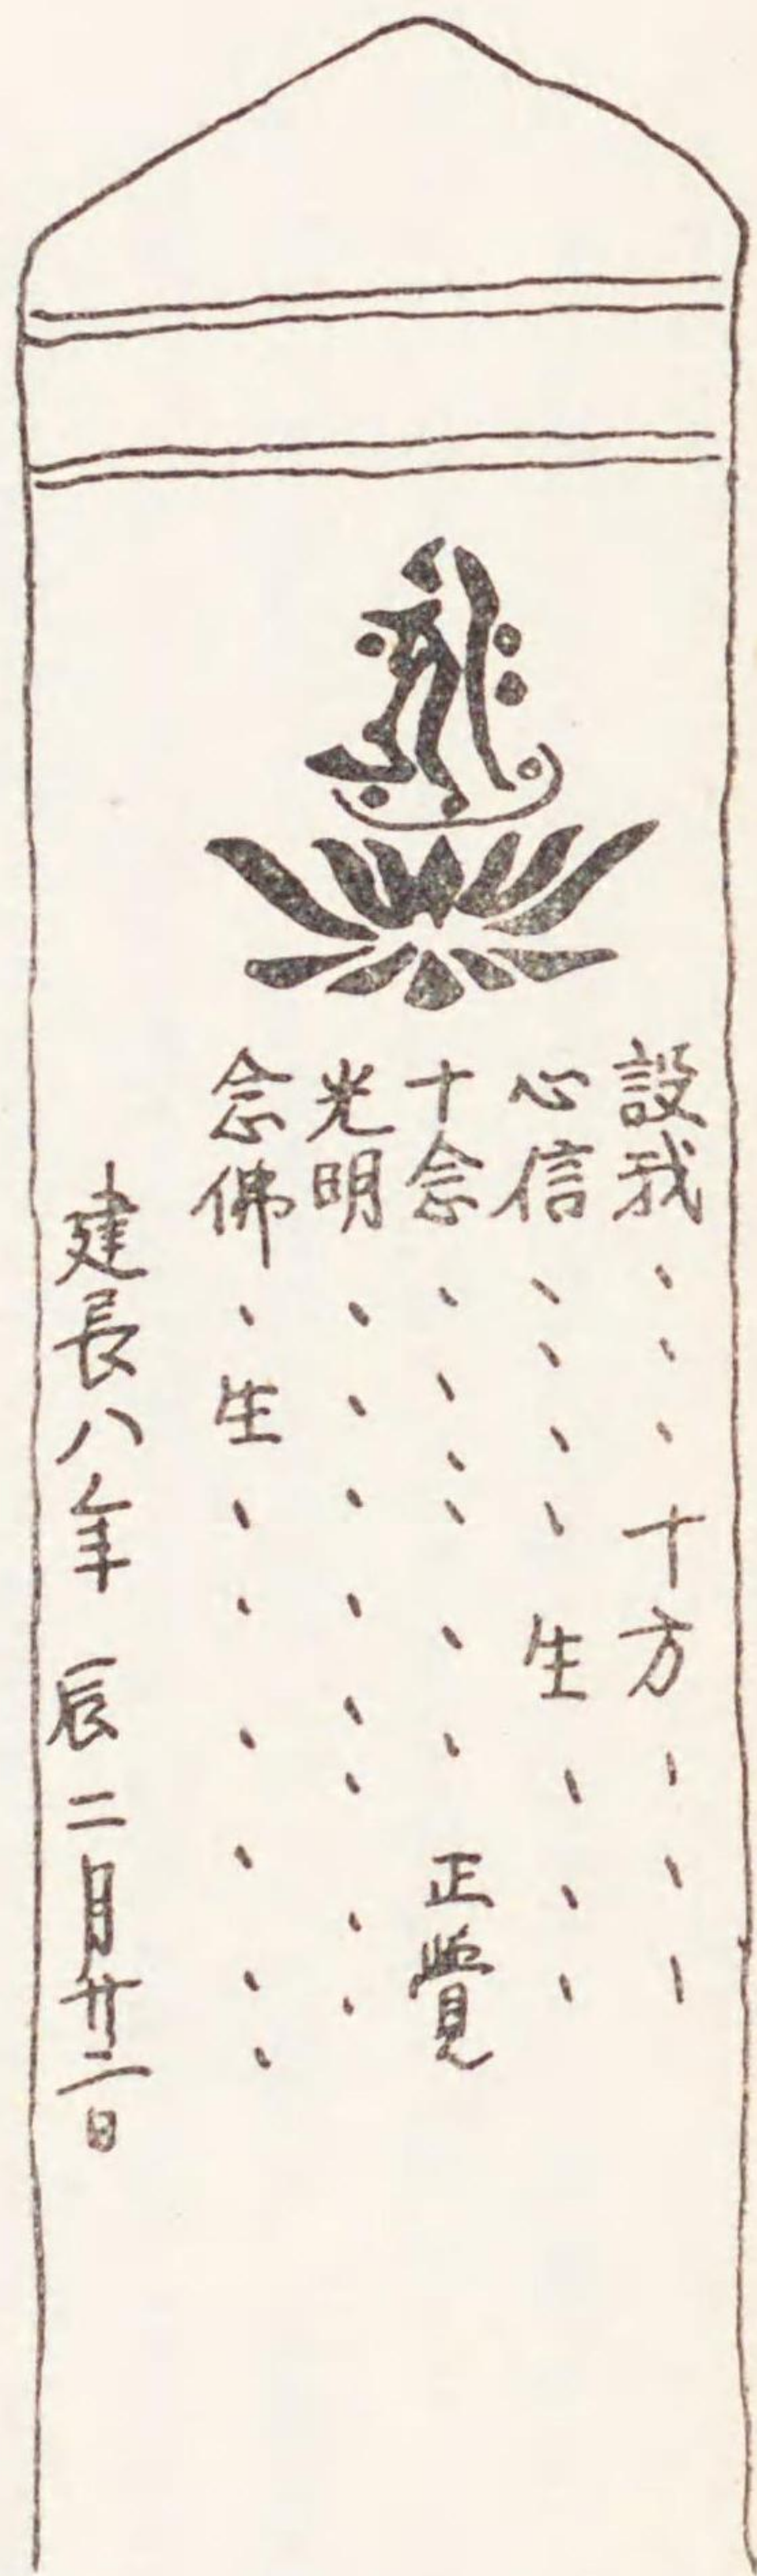 𑖮𑖿𑖨𑖱𑖾
設我、、、十方、、、
心信、、、、生、、、
十念、、、、、、正覺
光明、、、、、、、、
念佛、生、、、、、、
建長八年 辰二月廿二日